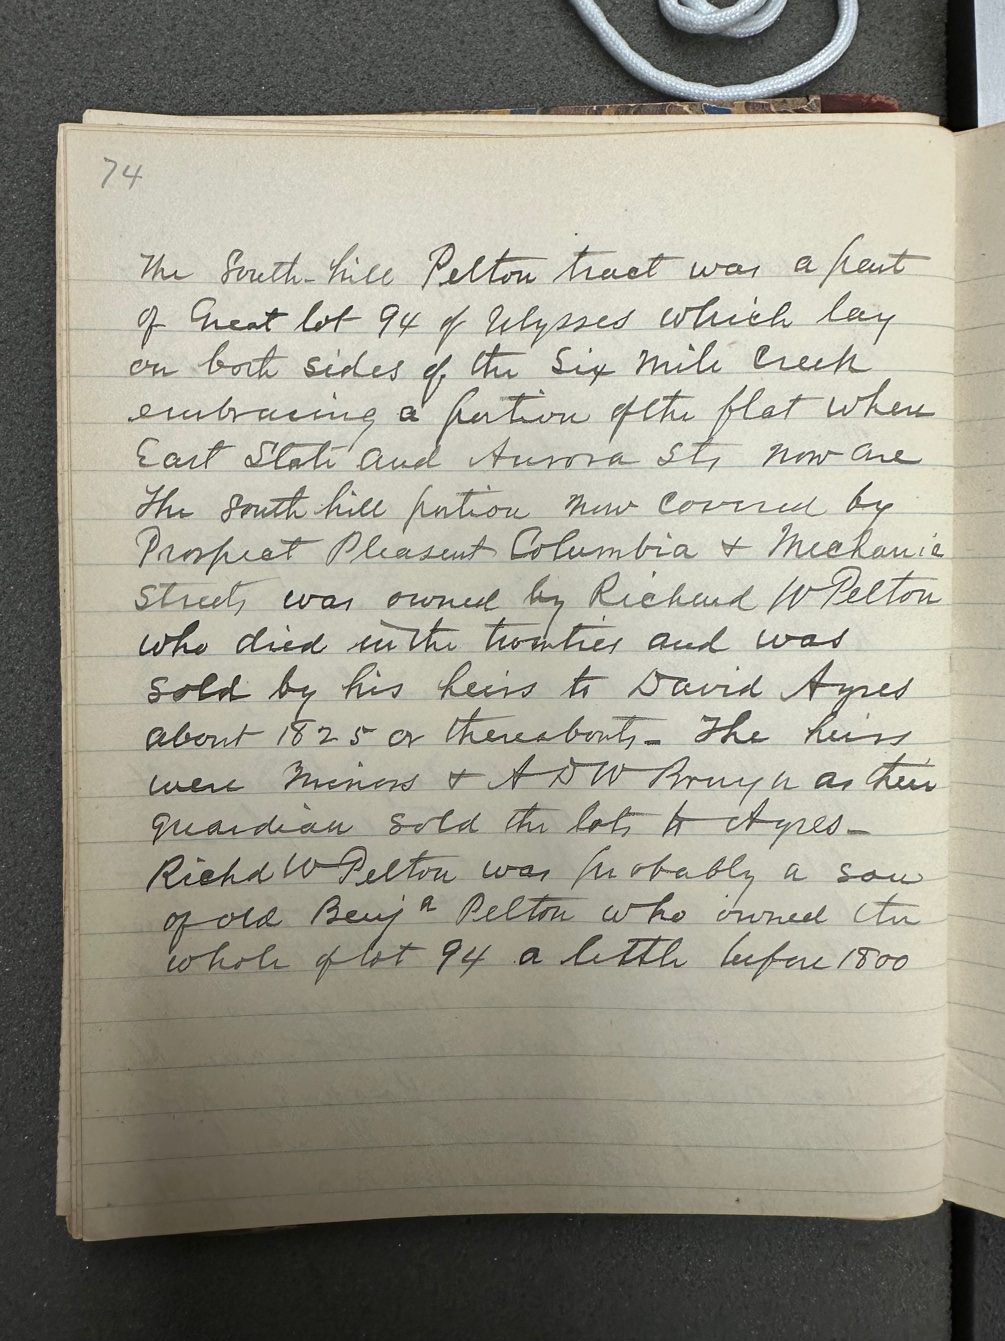 74
The South-hill Pelton tract was a part
of Great lot 94 of Ulysses which lay
on both sides of the Six Mile Creek
embracing a portion of the flat where
East State and Aurora Sts now are
The South hill portion now covered by
Prospect Pleasant Columbia & Mechanic
streets was owned by Richard W Pelton
who died in the twenties and was
sold by his heirs to David Ayres
about 1825 or thereabouts - The heirs
were minors & A D W Bruyn as their
guardian sold the lots to Ayres -
Richd W Pelton was probably a son
of old Benja Pelton who owned the
whole of lot 94 a little before 1800